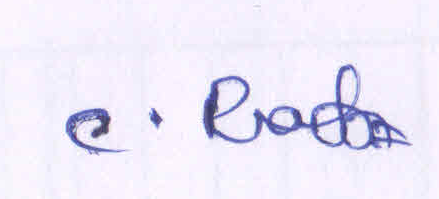 C. Radha